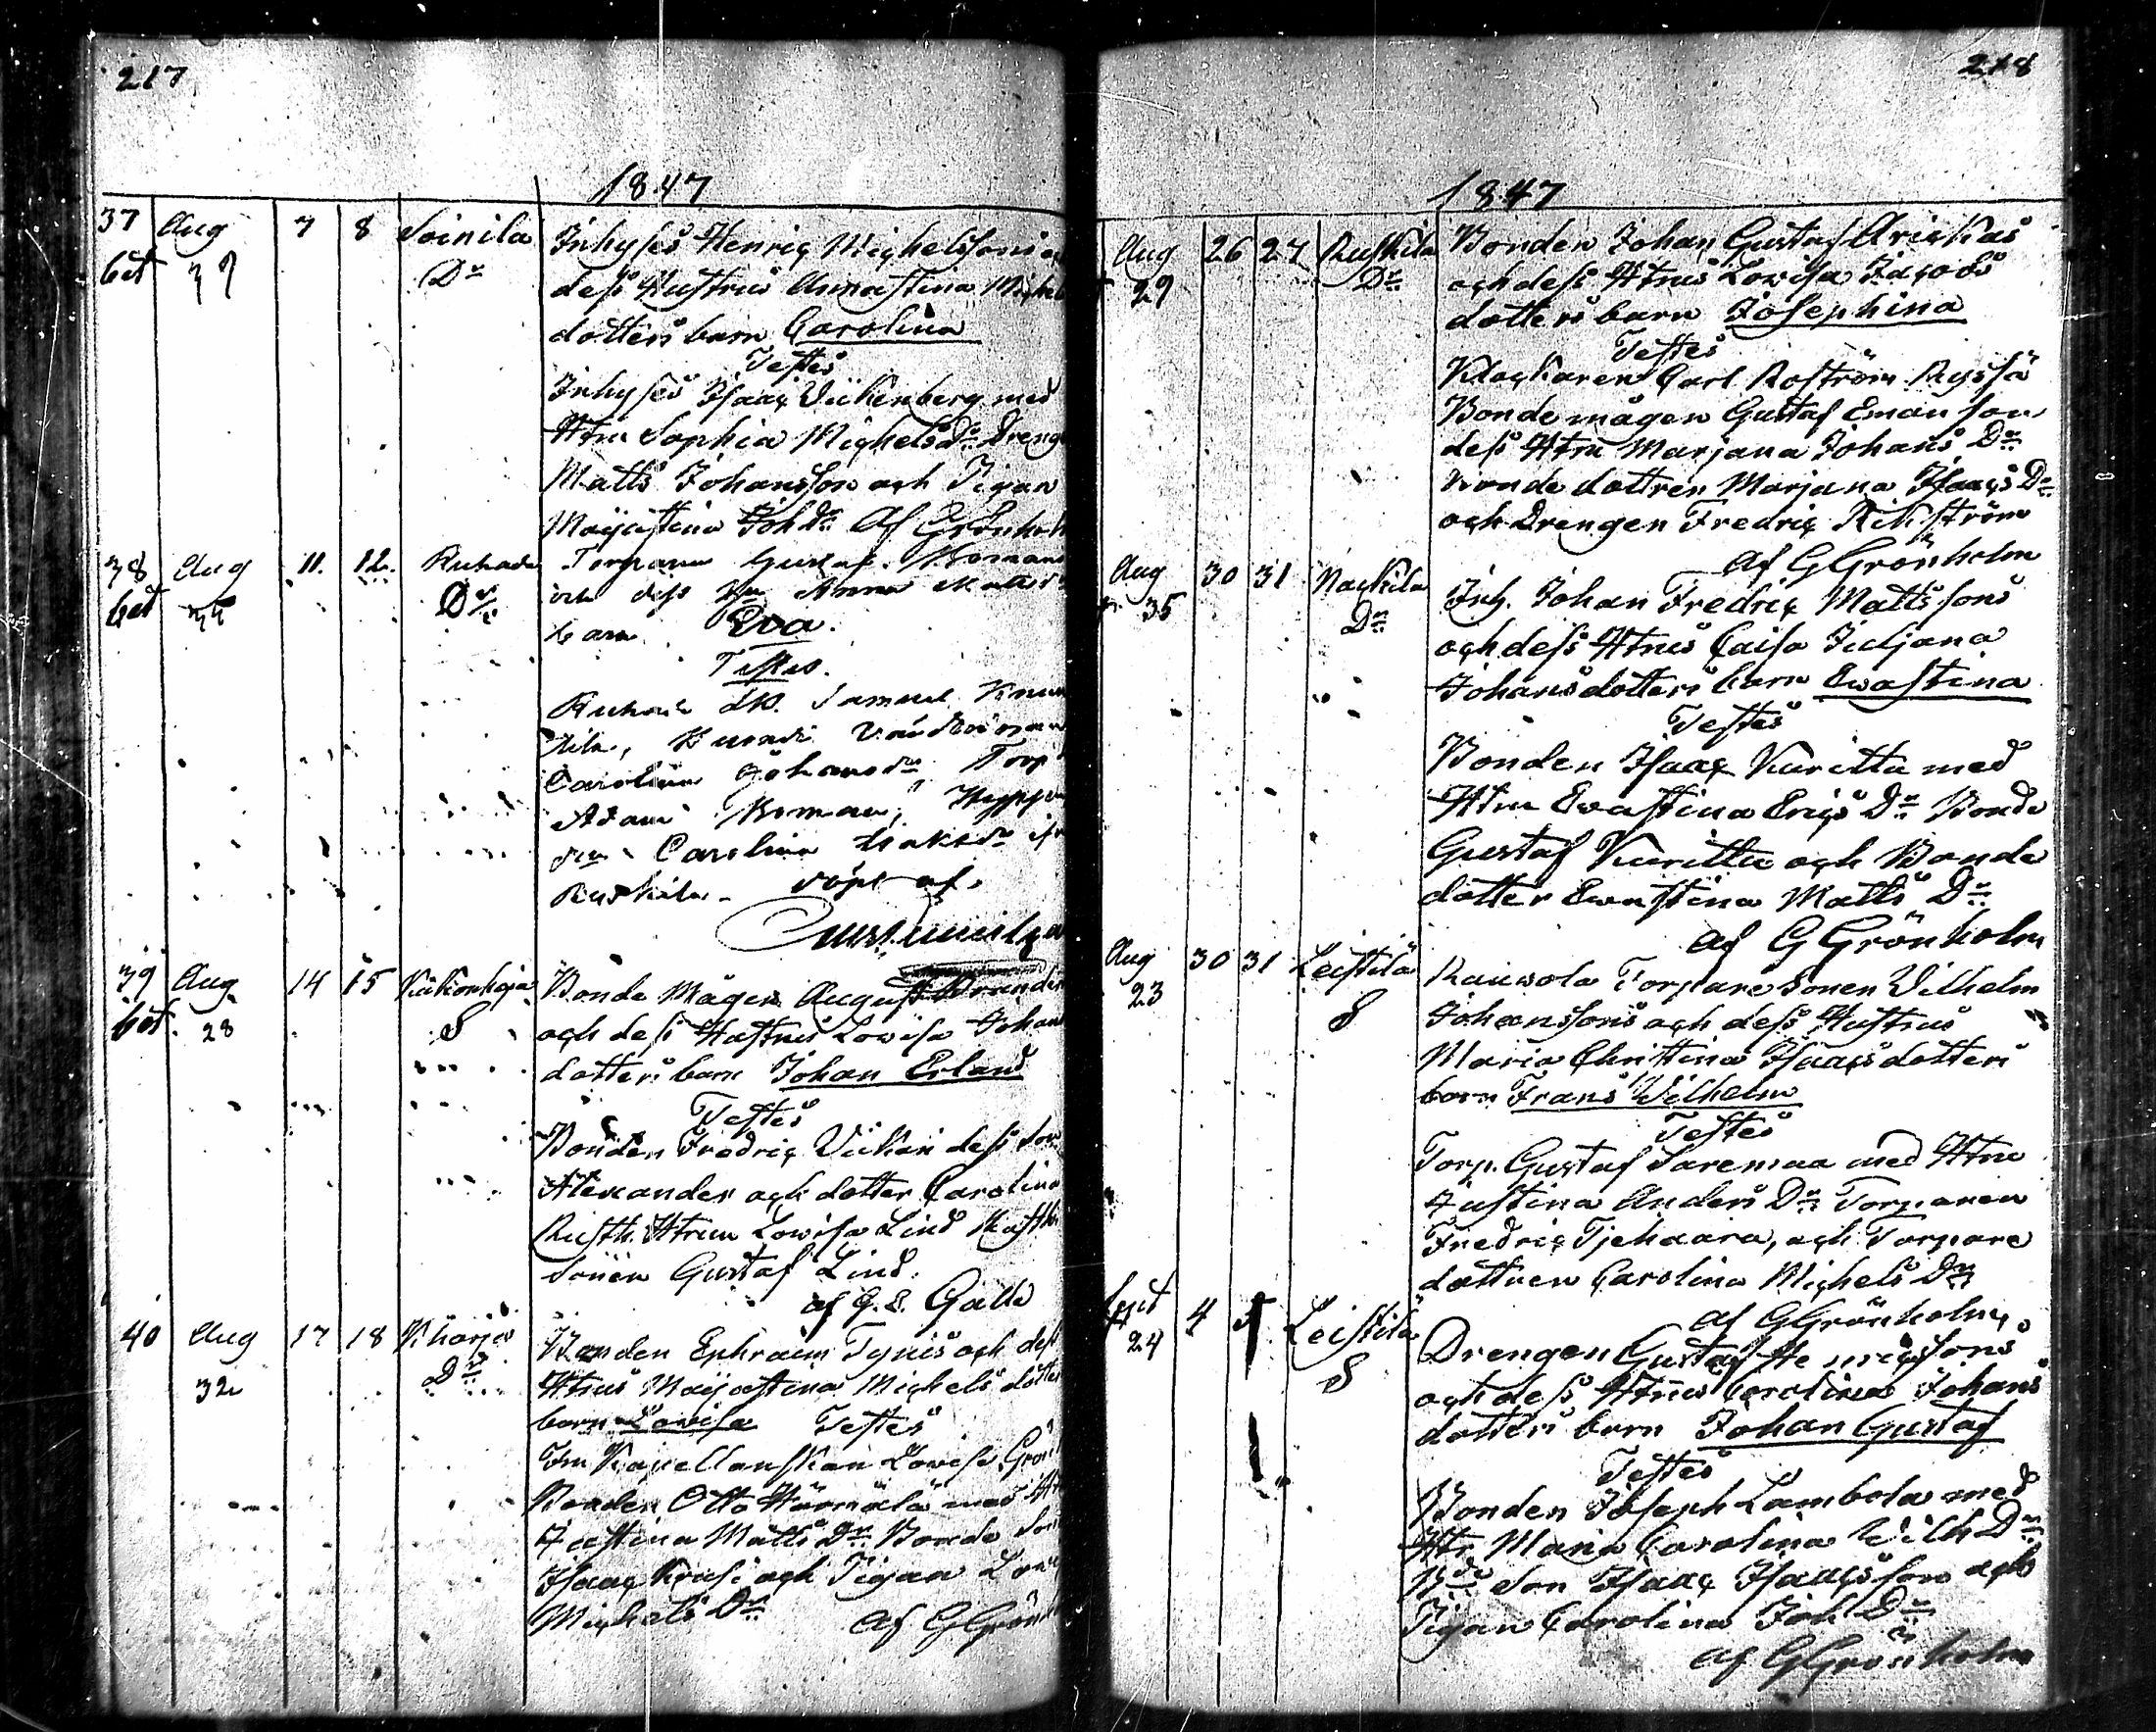 217
1847
37 Aug 7 8 Soinila Inhyses Henric Michelssons
bet 39 Dr dess Hustrus Annastina Michels
dotters barn Carolina
Testes
Inhyses Isaac Wikenberg med
Htru Sophia Michels Dr Dreng
Matts Johansson och Pigan
Majastina Joh Dr Af Grönholm
38 Aug 11. 12. Torparen Gustaf Roman
bet Dr och dess Anna Matts
barn Eva.
Testes.
Samuel
Carolina Johansdr Torp
Adam Roman,
Carolina Isaksdr
Ruskila. döpt af
39 Aug 14 15 Bonde Mågen August
bet. 28 S och dess Hustrus Lovisa Johans
dotters barn Johan Erland
Testes
Bonden Fredric dess son
Alexander och dotter Carolina
Rusth. Htrun Lovisa Lind Rusth
sonen Gustaf Lind.
af G. E. Gallé
40 Aug 17 18 Kharju Bonden Ephraim Tynis och dess
32 Dr Htrus Majastina Michels dotters
barn Lovisa Testes
Fru Kapellanskan Lovisa Grön
Bonden Otto Härmälä med Htru
Justina Matts Dr Bonde Son
Isaac Krusi och Pigan
Michels Dr af G Grönh
218
1847
Aug 26 27 Ruskila Bonden Johan Gustaf Ariskas
29 Dr och dess Htrus Lovisa Jacobs
dotters barn Josephina
Testes
Klockaren Carl Roström Ryssä
Bonde mågen Gustaf Emanson
dess Htru Marjana Johans Dr
Bonde dottren Marjana Isaacs Dr
och Drengen Fredric Rikström
af G Grönholm
Aug 30 31 Nackila Inh. Johan Fredric Mattssons
35 Dr och dess Htrus Caisa Juljana
Johansdotters barn Evastina
Testes
Bonden Isaac Kuritta med
Htru Evastina Erics Dr Bonde
Gustaf Kuritta och Bonde
dotter Evastina Matts Dr
af G Grönholm
Aug 30 31 Leistilä Kauvola Torpare Sonen Vilhelm
23 S Johanssons och dess Hustrus
Maria Christina Isaacsdotters
barn Frans Wilhelm
Testes
Torp. Gustaf Saremaa med Htru
Justina Anders Dr Torparen
Fredric Tjehaara, och Torpare
dottren Carolina Michels Dr
af G Grönholm
Sept 4 5 Leistilä Drengen Gustaf Henricssons
24 S och dess Htrus Carolina Johans
dotters barn Johan Gustaf
Testes
Bonden Joseph Lambola med
Htr. Maria Carolina Wilh Dr
Bde Son Isaac Isaacsson och
Pigan Carolina Joh Dr
af G Grönholm